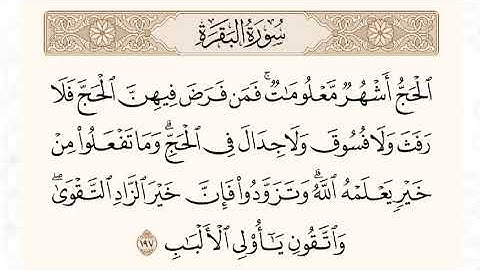 سُورَةُ البَقَرَةِ
ٱلْحَجُّ أَشْهُرٌ مَّعْلُومَٰتٌ ۚ فَمَن فَرَضَ فِيهِنَّ ٱلْحَجَّ فَلَا
رَفَثَ وَلَا فُسُوقَ وَلَا جِدَالَ فِى ٱلْحَجِّ ۗ وَمَا تَفْعَلُوا۟ مِنْ
خَيْرٍ يَعْلَمْهُ ٱللَّهُ ۗ وَتَزَوَّدُوا۟ فَإِنَّ خَيْرَ ٱلزَّادِ ٱلتَّقْوَىٰ ۖ
وَٱتَّقُونِ يَٰٓأُو۟لِى ٱلْأَلْبَٰبِ ١٩٧